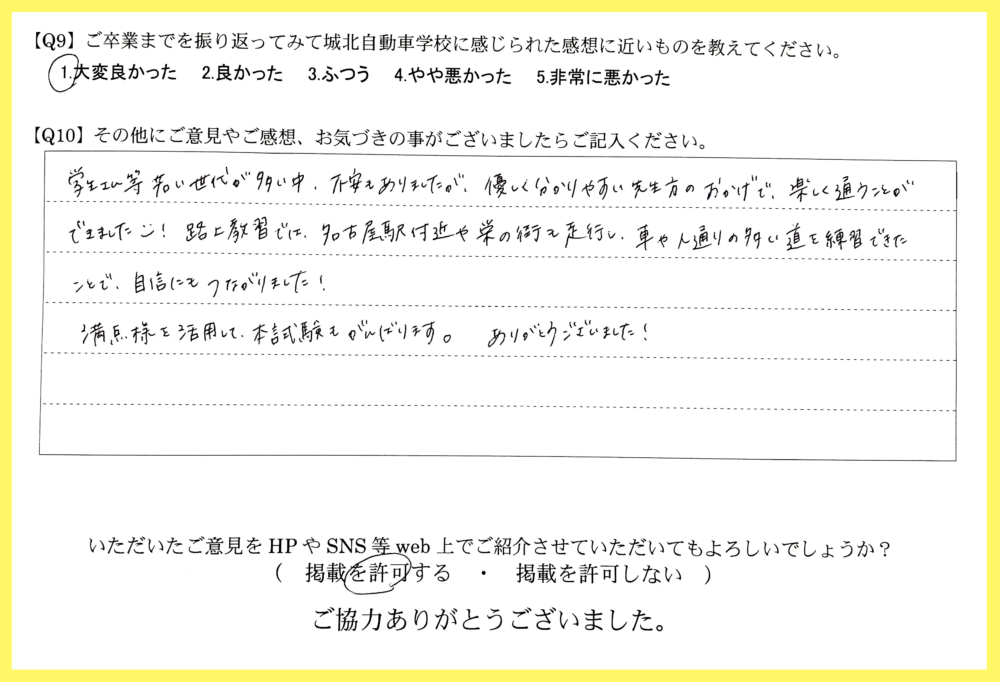 【Q9】ご卒業までを振り返ってみて城北自動車学校に感じられた感想に近いものを教えてください。
1.大変良かった 2.良かった 3.ふつう 4.やや悪かった 5.非常に悪かった
【Q10】その他にご意見やご感想、お気づきの事がございましたらご記入ください。
学生さん等若い世代が多い中、不安もありましたが、優しく分かりやすい先生方のおかげで、楽しく通うことが
できました！路上教習では、名古屋駅付近や栄の街を走行し、車や人通りの多い道を練習できた
ことで、自信にもつながりました！
満点様を活用して、本試験もがんばります。 ありがとうございました！
いただいたご意見をHPやSNS等web上でご紹介させていただいてもよろしいでしょうか？
（ 掲載を許可する ・ 掲載を許可しない ）
ご協力ありがとうございました。